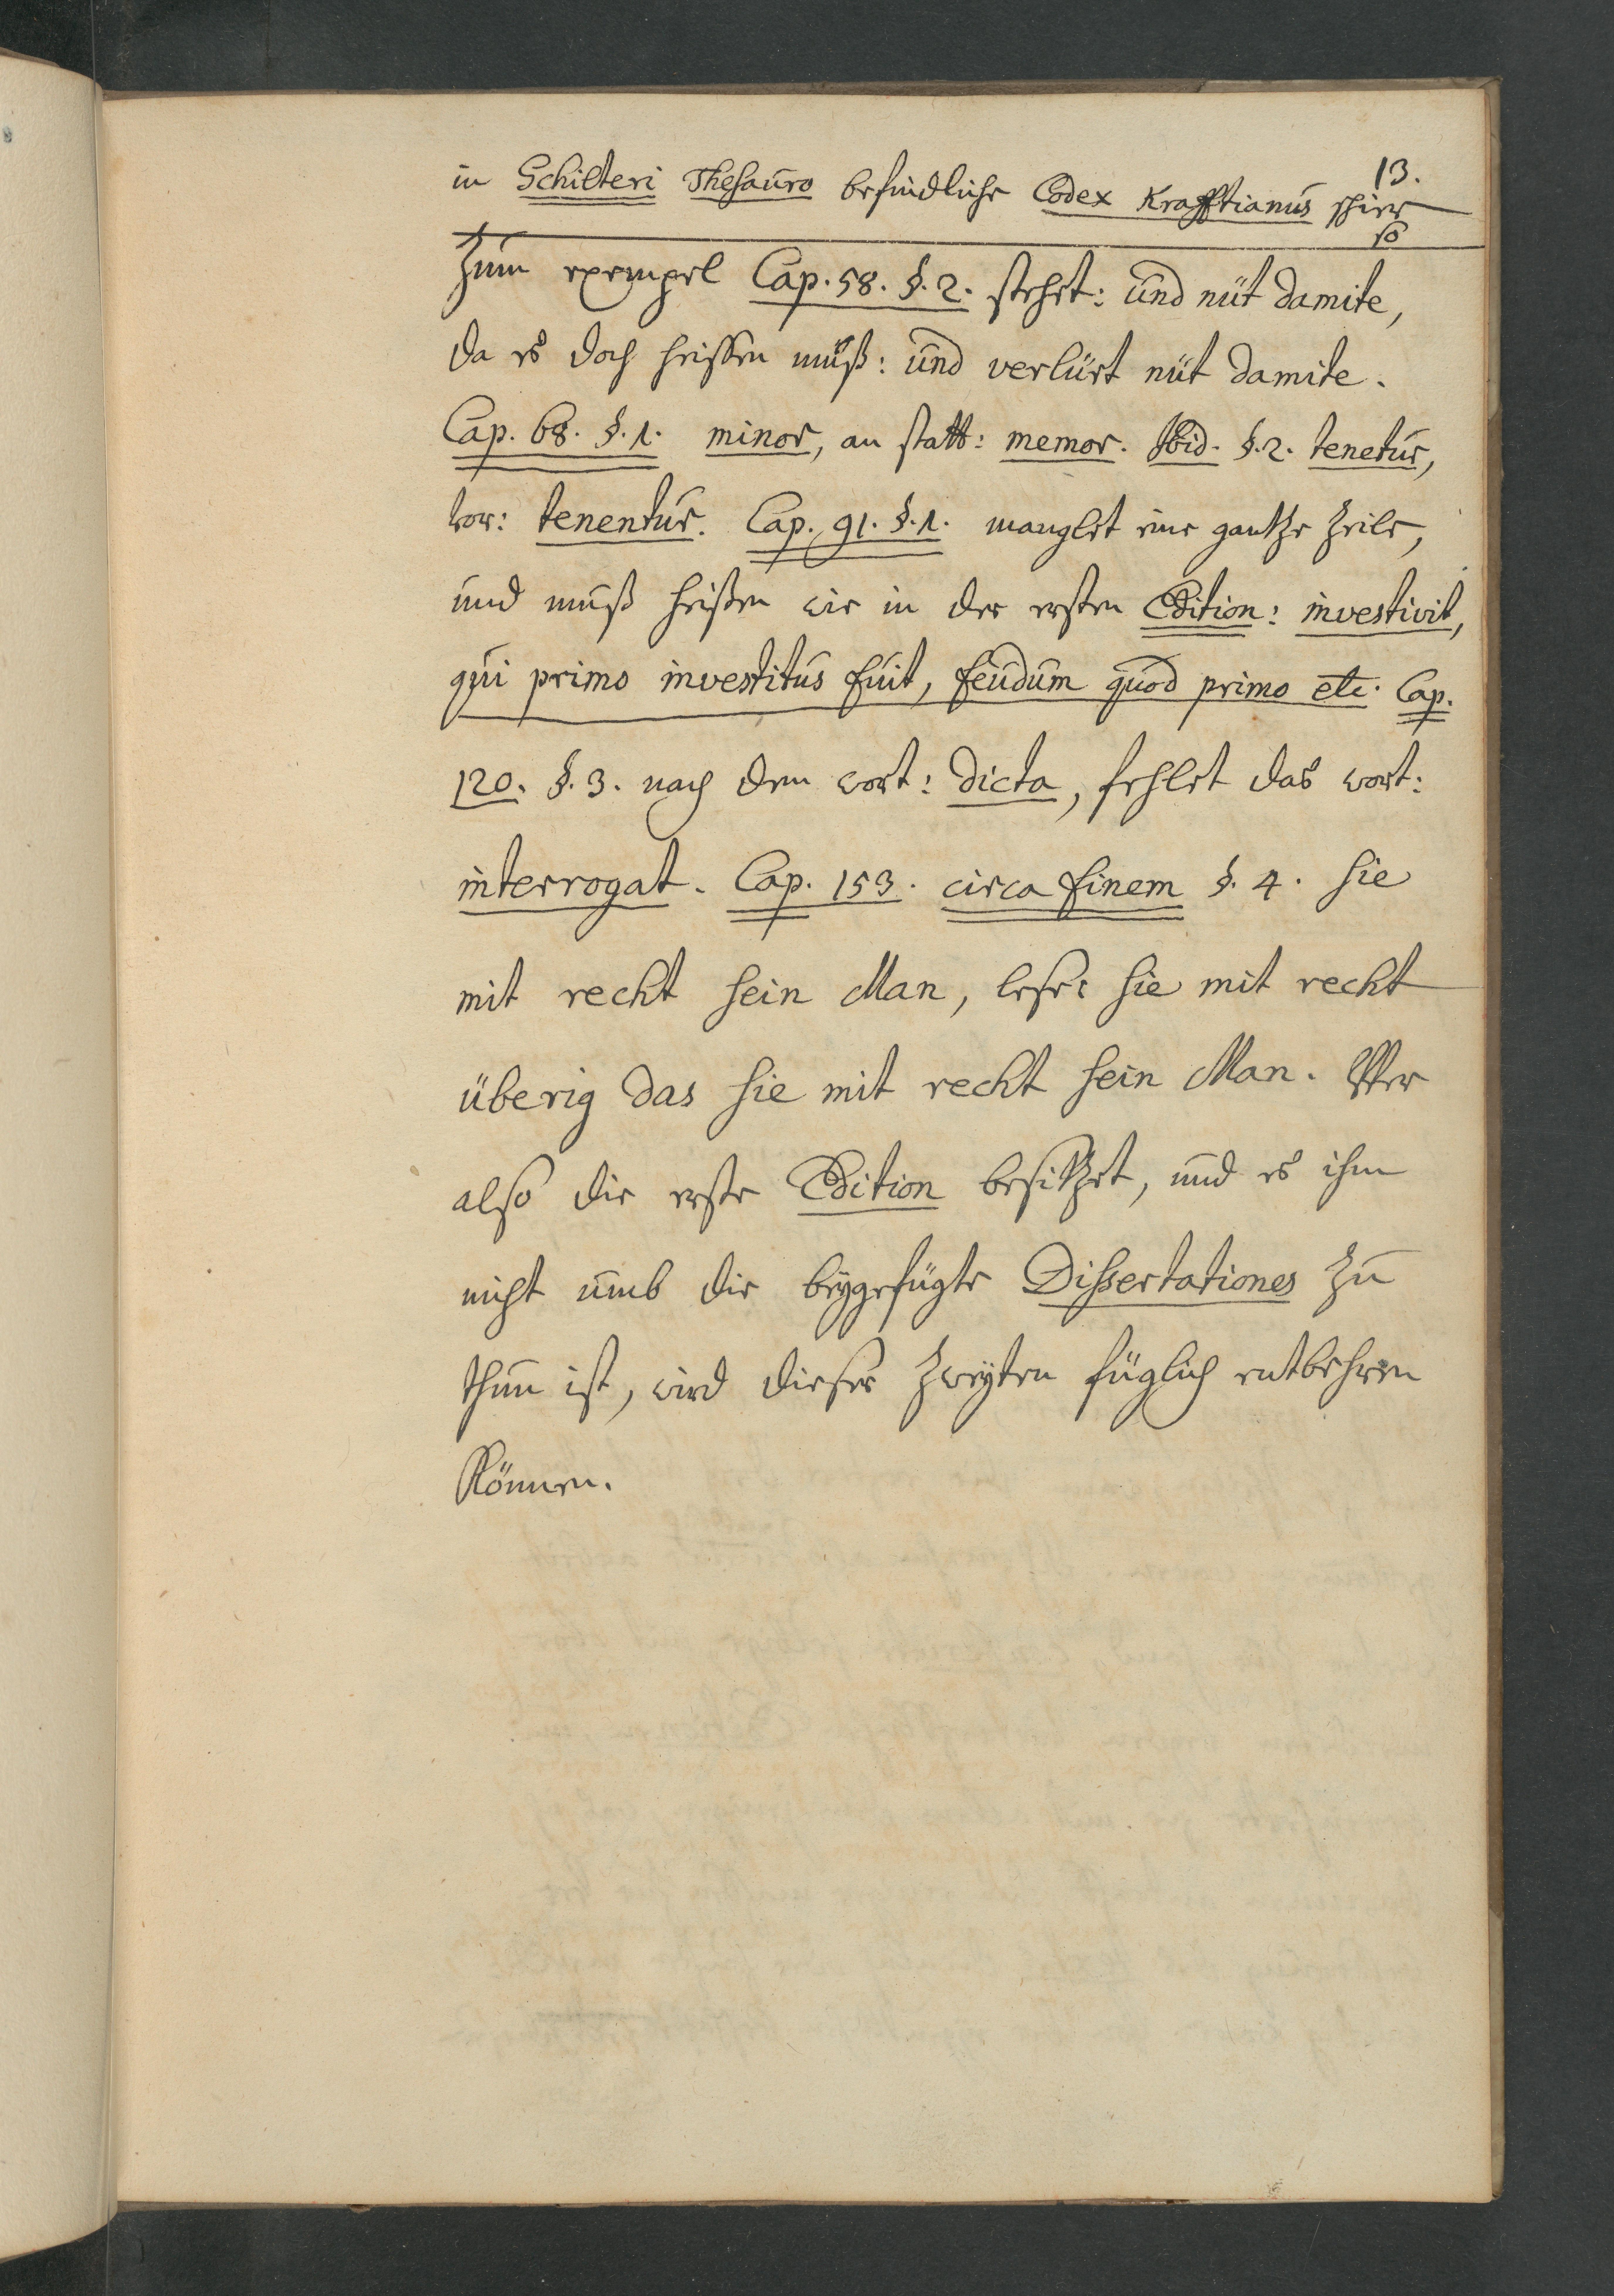 13.
in Schilteri Thesauro befindliche Codex Krafftianus schier
so
Zum exempel Cap. 58. §. 2. stehet: und nüt damite,
da es doch heissen muß: und verlürt nüt damite.
Cap. 68. §. 1. minor, an statt: memor. Ibid. §. 2. tenetur,
vor: tenentur. Cap. 91. §. 1. manglet eine gantze Zeile,
und muß heißen wie in der ersten Edition: investivit,
qui primo investitus fuit, feudum quod primo etc. Cap.
120. §. 3. nach dem wort: dicta, fehlet das wort:
interrogat. Cap. 153. circa finem §. 4. sie
mit recht sein Man, lese: sie mit recht
überig das sie mit recht sein Man. Wer
also die erste Edition besitzet, und es ihm
nicht umb die beygefügte Dissertationes zu
thun ist, wird dieser zweyten füglich entbehren
Können.